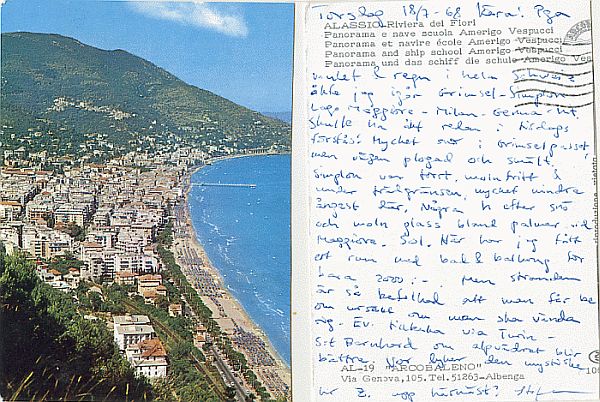 Torsdag 18/7-68 Kära! Pga
ALASSIO Riviera dei Fiori
Panorama e nave scuola Amerigo Vespucci
Panorama et navire école Amerigo Vespucci
Panorama and ship school Amerigo Vespucci
Panorama und das schiff die schule Amerigo Ves
& regn i hela Schweiz
åkte jag igår Grimsel-Simplon-
Lago Maggiore - Milan - Genua - hit.
Skulle ha åkt redan i tisdags
förstås! Mycket snö i Grimselpasset
men vägen plogad och
Simplon var torrt, molnfritt &
under trädgränsen, mycket mindre
där. Några h efter snö
och moln glass bland palmer vid
Maggiore. Sol. Här har jag fått
ett rum med bad & balkong för
bara 2000:-. Men stranden
är så befolkad att man får be
om ursäkt om man ska vända
sig. Ev. tillbaka via Turin-
S:t Bernhard om alpvädret blir
bättre. den mystiske
AL-19 "ARCOBALENO"
Via Genova, 105. Tel. 51263-Albenga
hr Z. upp härnäst?
riproduzione vietata